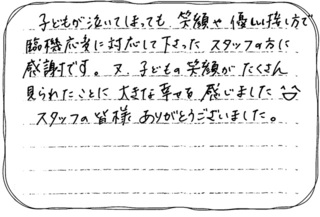 子どもが泣いてしまっても 笑顔や優しい接し方で
臨機応変に対応して下さった スタッフの方に
感謝です。又、子どもの笑顔が たくさん
見られたことに 大きな幸せを 感じました
スタッフの皆様 ありがとうございました。